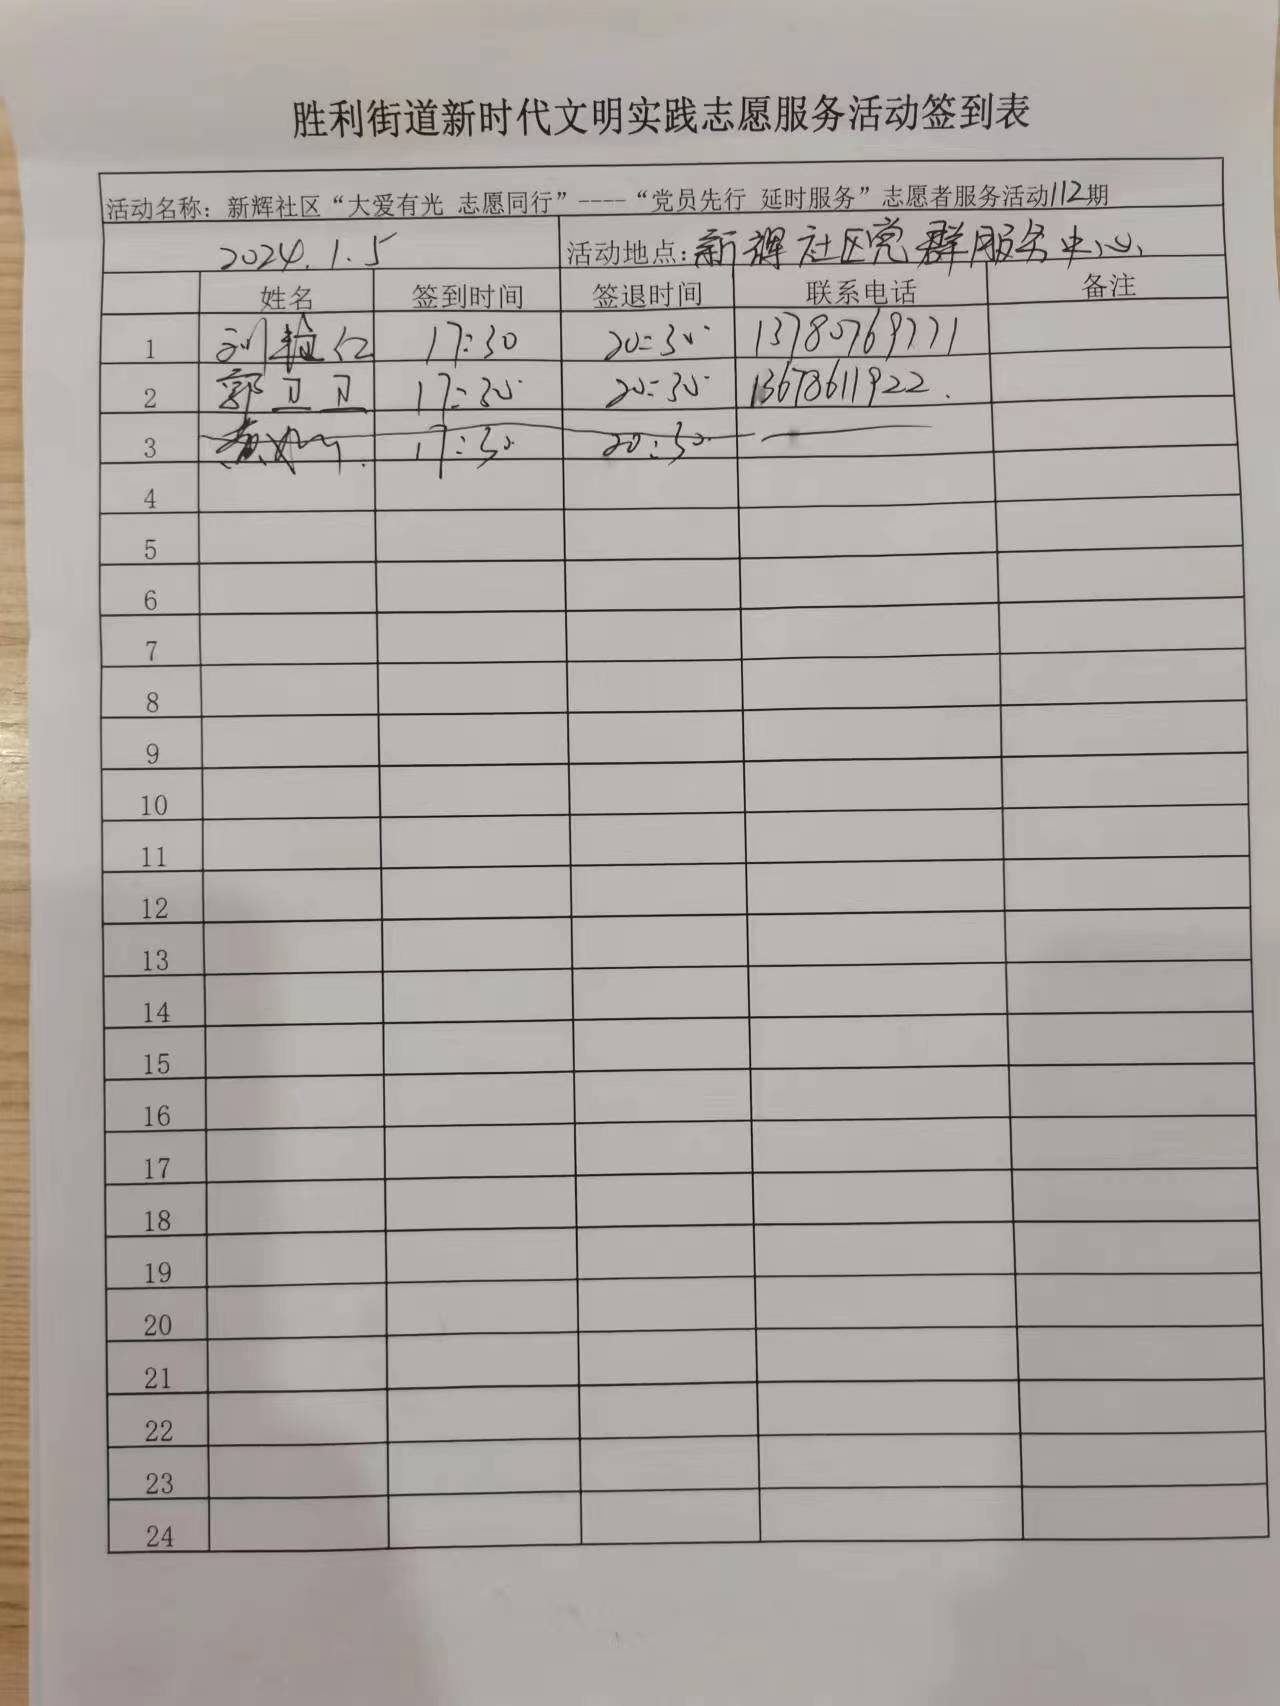 胜利街道新时代文明实践志愿服务活动签到表
活动名称：新辉社区“大爱有光 志愿同行”----“党员先行 延时服务”志愿者服务活动112期
2024.1.5 活动地点：新辉社区党群服务中心
姓名 签到时间 签退时间 联系电话 备注
1 刘 红 17:30 20:30 13780769771
2 郭卫卫 17:30 20:30 13678611922
3 17:30 20:30
4
5
6
7
8
9
10
11
12
13
14
15
16
17
18
19
20
21
22
23
24